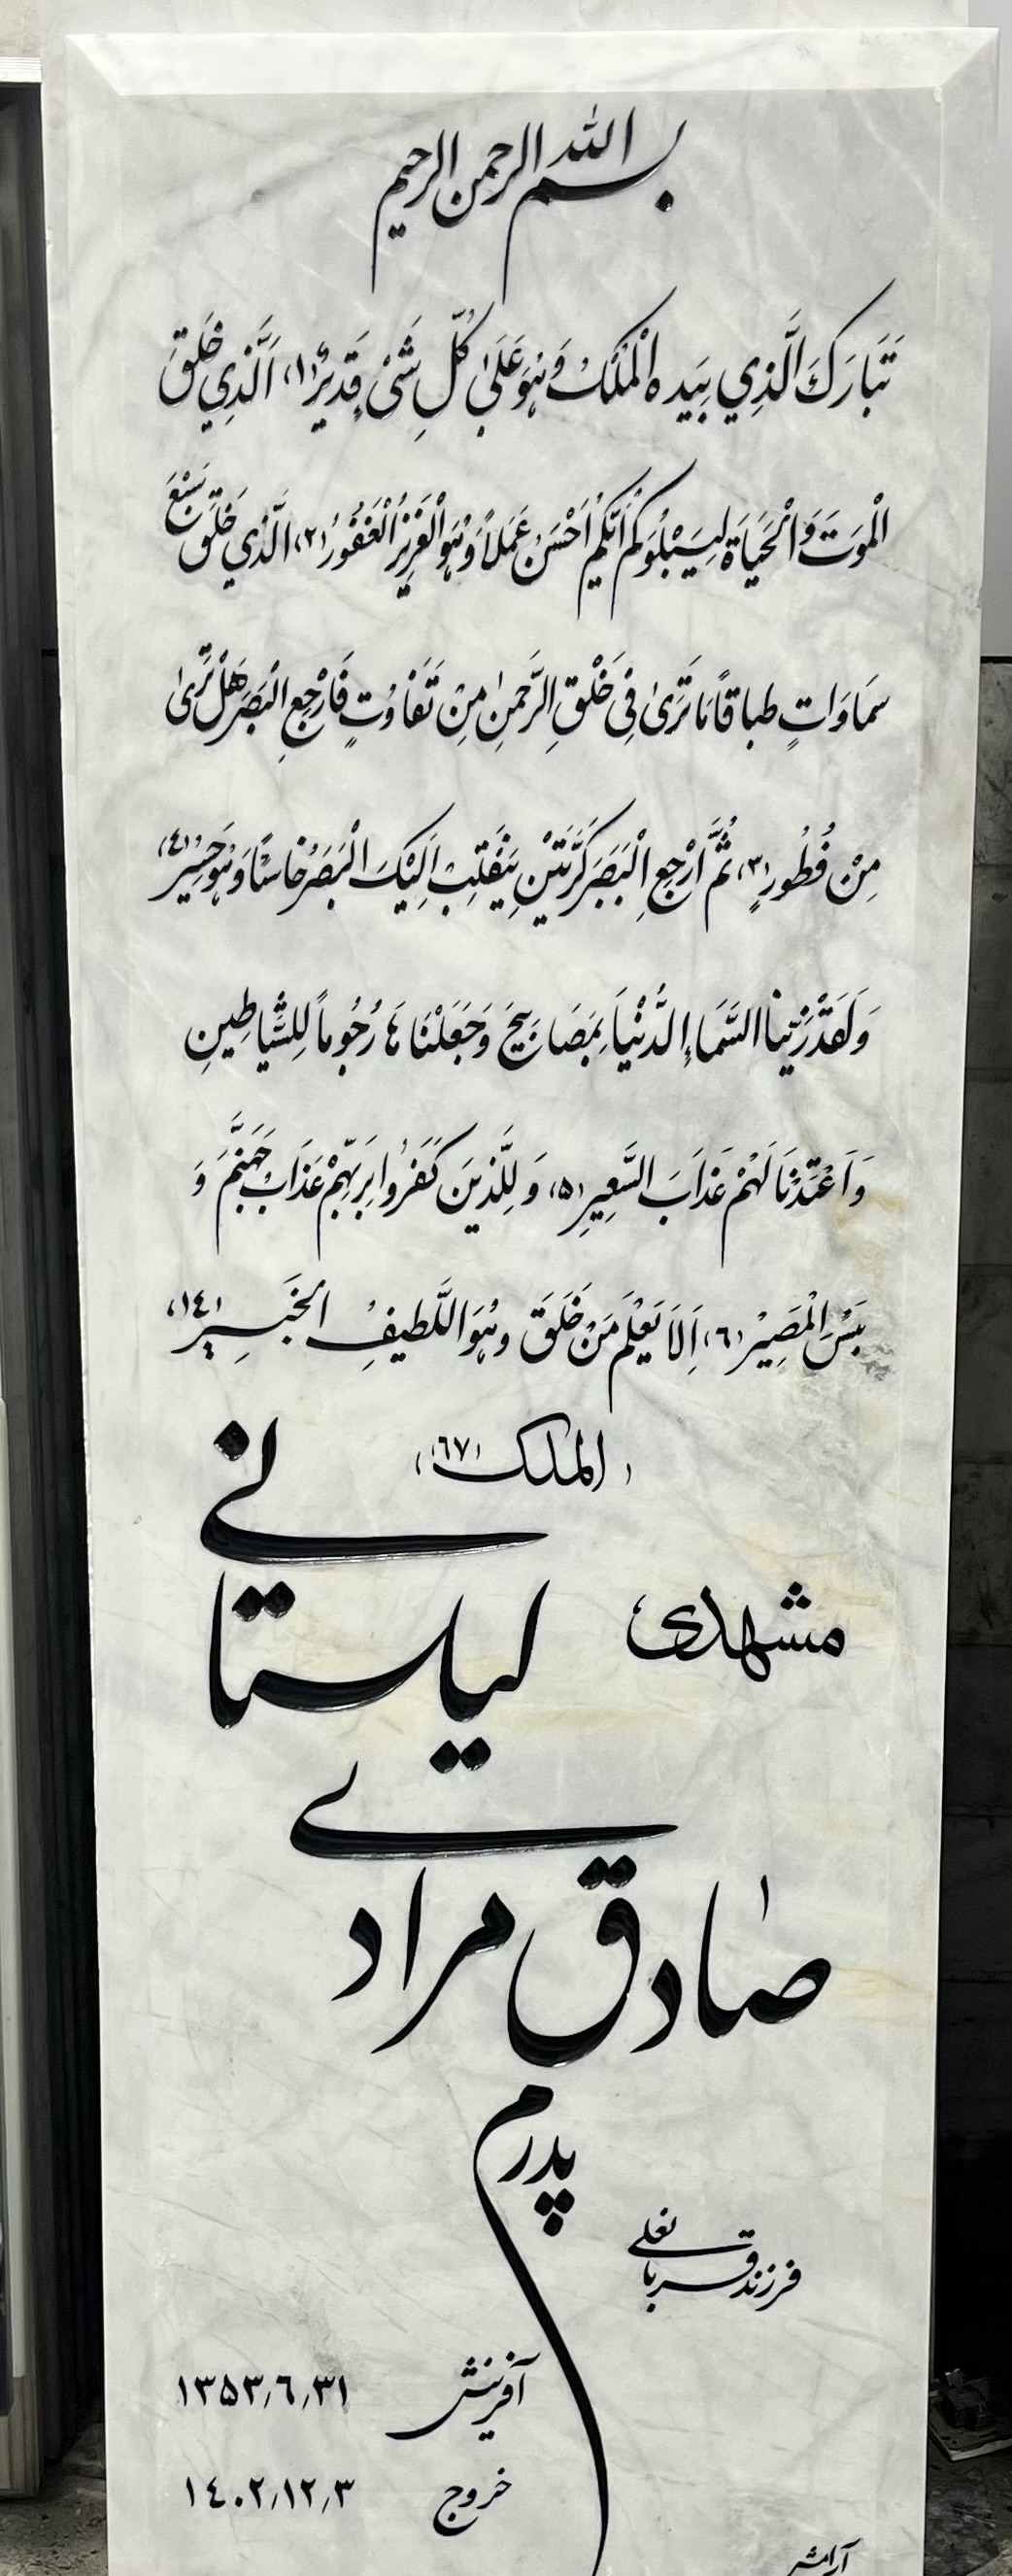 بسم الله الرحمن الرحیم
تَبَارَکَ الَّذِي بِیَدِهِ الْمُلْکُ وَهُوَ عَلَىٰ کُلِّ شَیْءٍ قَدِیرٌ (۱) الَّذِي خَلَقَ
الْمَوتَ وَالْحَیَاةَ لِیَبْلُوَکُمْ أَیُّکُمْ أَحْسَنُ عَمَلاً وَهُوَ الْعَزِیزُ الْغَفُورُ (۲) الَّذِي خَلَقَ سَبْعَ
سَمَاوَاتٍ طباقاً مَا تَرَىٰ فِی خَلْقِ الرَّحْمنِ مِنْ تَفَاوُتٍ فَارْجِعِ الْبَصَرَ هَلْ تَرَىٰ
مِنْ فُطُورٍ (۳) ثُمَّ ارْجِعِ الْبَصَرَ کَرَّتَیْنِ یَنْقَلِبْ اِلَیْکَ الْبَصَرُ خَاسِئًا وَهُوَ حَسِیرٌ (٤)
وَلَقَدْ زَیَّنَا السَّمَاءَ الدُّنْیَا بِمَصَابِیحَ وَجَعَلْنَاهَا رُجُوماً لِلشَّیَاطِینِ
وَاَعْتَدْنَا لَهُمْ عَذَابَ السَّعِیرِ (۵) وَلِلَّذِینَ کَفَرُوا بِرَبِّهِمْ عَذَابُ جَهَنَّمَ وَ
بِئْسَ الْمَصِیرُ (٦) اَلَا یَعْلَمُ مَنْ خَلَقَ وَهُوَ اللَّطِیفُ الْخَبِیرُ (١٤)
(الملک (٦٧))
مشهدی
لیلستانی
صادق مرادی
پدرم
فرزند قربانعلی
آفرینش ۱۳۵۳٫٦٫۳۱
خروج ۱٤۰۲٫۱۲٫۳
آرامش